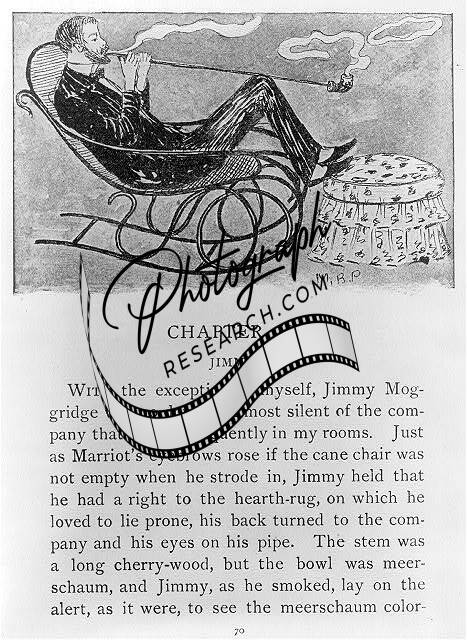 Photograph
RESEARCH.COM
CHAPTER
WITH the exception myself, Jimmy Mog-
gridge most silent of the com-
pany that frequently in my rooms. Just
as Marriot's eyebrows rose if the cane chair was
not empty when he strode in, Jimmy held that
he had a right to the hearth-rug, on which he
loved to lie prone, his back turned to the com-
pany and his eyes on his pipe. The stem was
a long cherry-wood, but the bowl was meer-
schaum, and Jimmy, as he smoked, lay on the
alert, as it were, to see the meerschaum color-
70